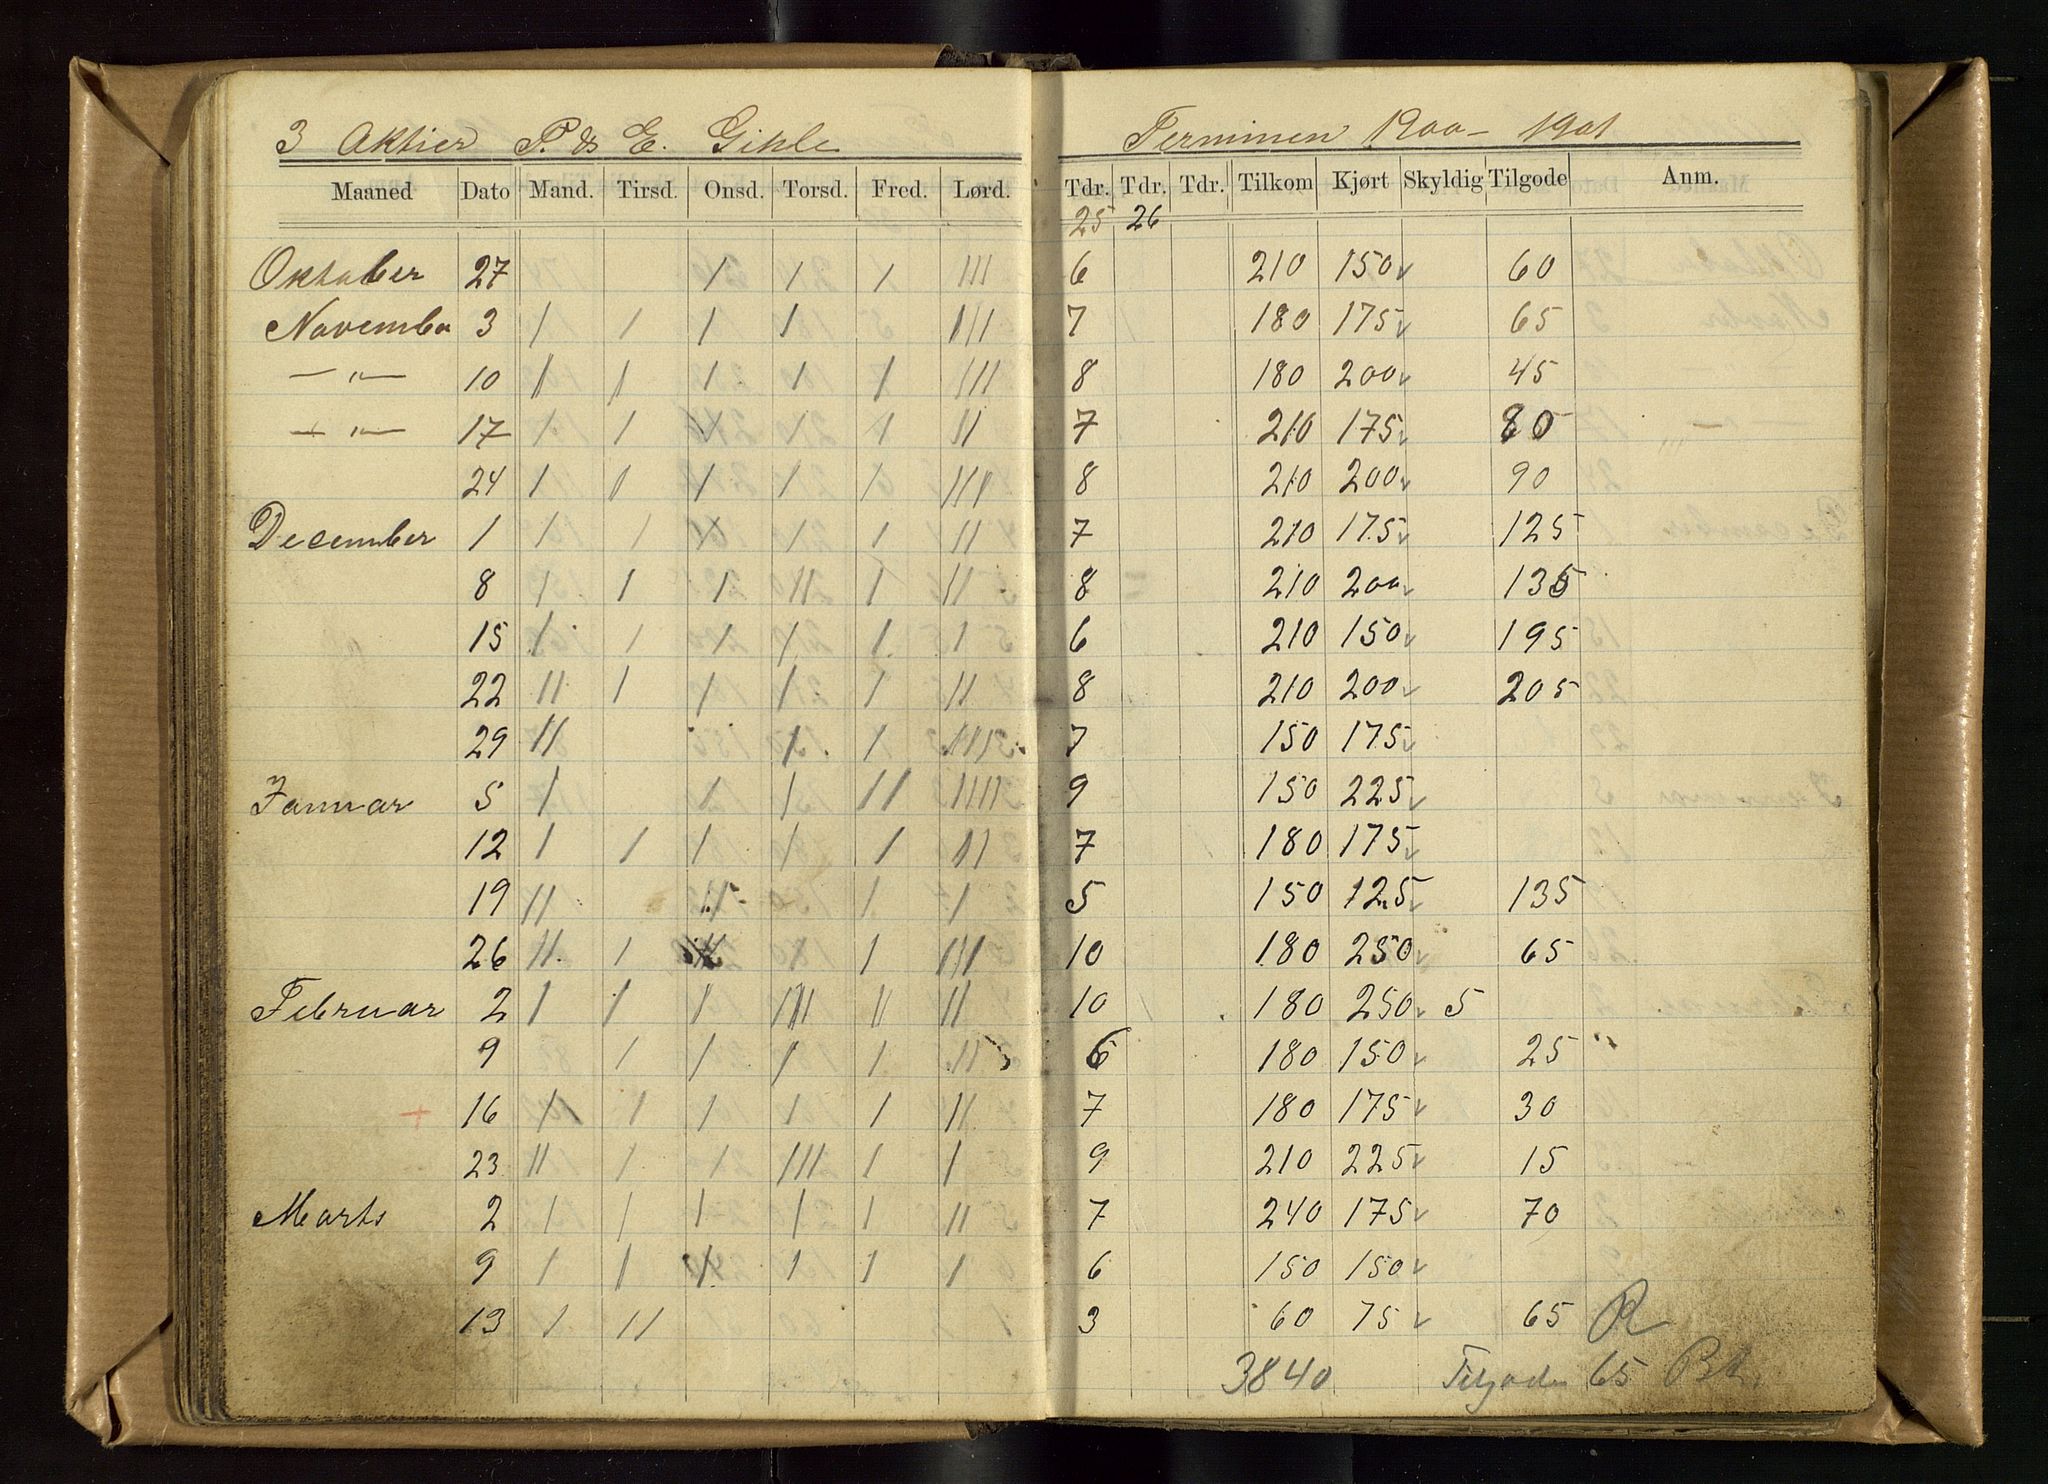 3 Aktier P. & E. Gihle Terminen 1900 - 1901
Maaned Dato Mand. Tirsd. Onsd. Torsd. Fred. Lørd. Tdr. Tdr. Tdr. Tilkom Kjørt Skyldig Tilgode Anm.
25 26
Oktober 27 / / / /// 6 210 150 ✓ 60
November 3 / / / / /// 7 180 175 ✓ 65
— " — 10 / / / / / /// 8 180 200 ✓ 45
— " — 17 / / / / / // 7 210 175 ✓ 80
24 / / / / / /// 8 210 200 ✓ 90
December 1 / / / / / // 7 210 175 ✓ 125
8 / / / // / // 8 210 200 ✓ 135
15 / / / / / / 6 210 150 ✓ 195
22 // / / / / // 8 210 200 ✓ 205
29 // / / /// 7 150 175 ✓
Januar 5 / / / // //// 9 150 225 ✓
12 / / / / / // 7 180 175 ✓
19 // / / 5 150 125 ✓ 135
26 // / / / /// 10 180 250 ✓ 65
Februar 2 / / / /// // // 10 180 250 ✓ 5
9 / / / / // 6 180 150 ✓ 25 "
+ 16 / / / / / // 7 180 175 ✓ 30
23 // / / /// / / 9 210 225 ✓ 15
Marts 2 / / / / / // 7 240 175 ✓ 70
9 / / / / / / 6 150 150 ✓
13 / // 3 60 75 ✓ 65
3840 Tilgode 65